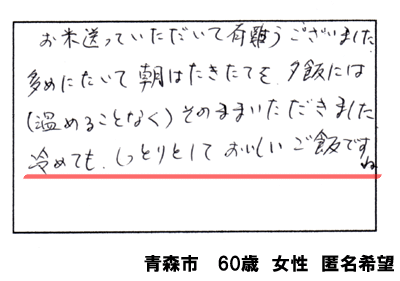 お米送っていただいて有難うございました
多めにたいて朝はたきたてを、夕飯には
(温めることなく)そのままいただきました
冷めても、しっとりとしておいしいご飯ですね
青森市 60歳 女性 匿名希望